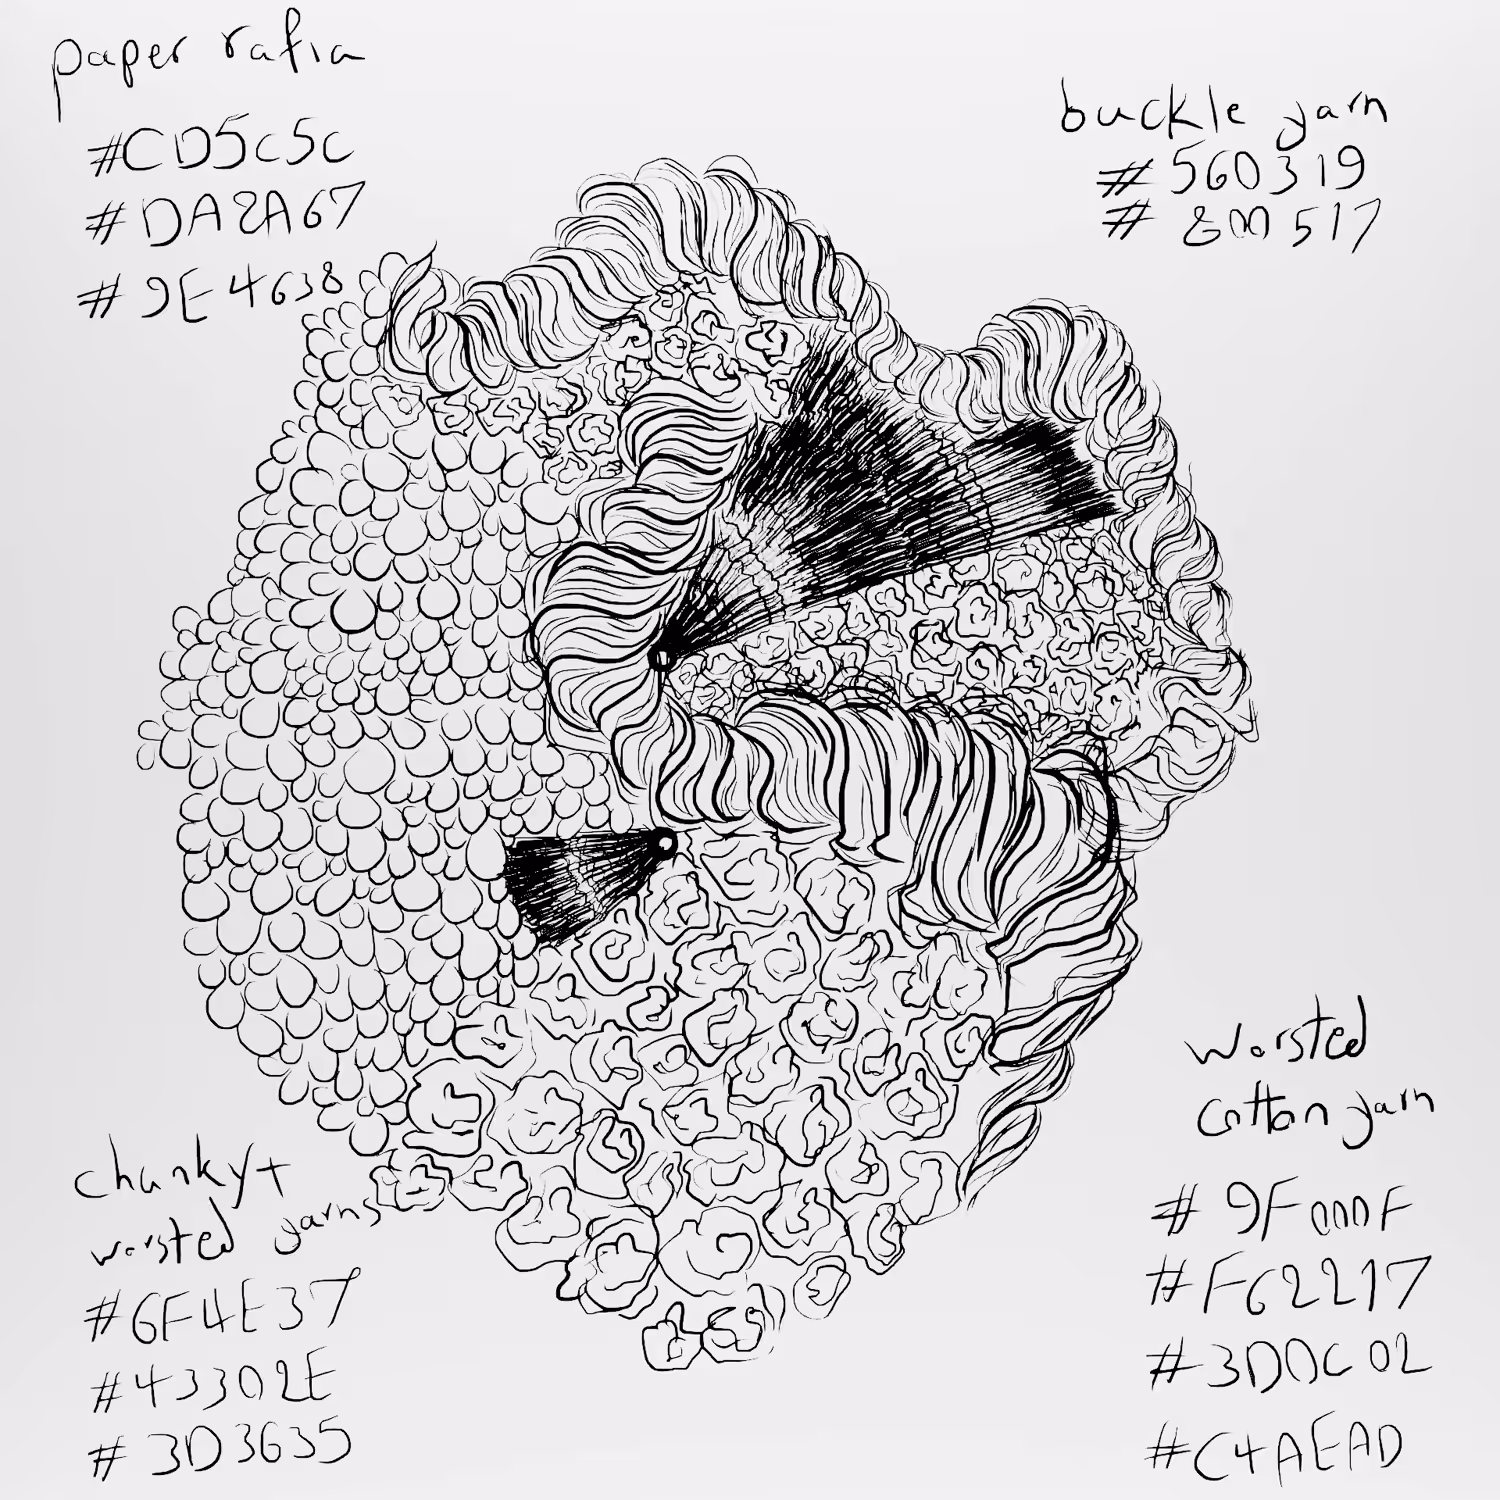 paper rafia
#CD5C5C
#DA2A67
#9E4638
buckle yarn
#560319
#800517
chunky+
worsted yarns
#6F4E37
#43302E
#3D3635
Worsted
Cotton yarn
#9F000F
#F62217
#3D0C02
#C4AEAD